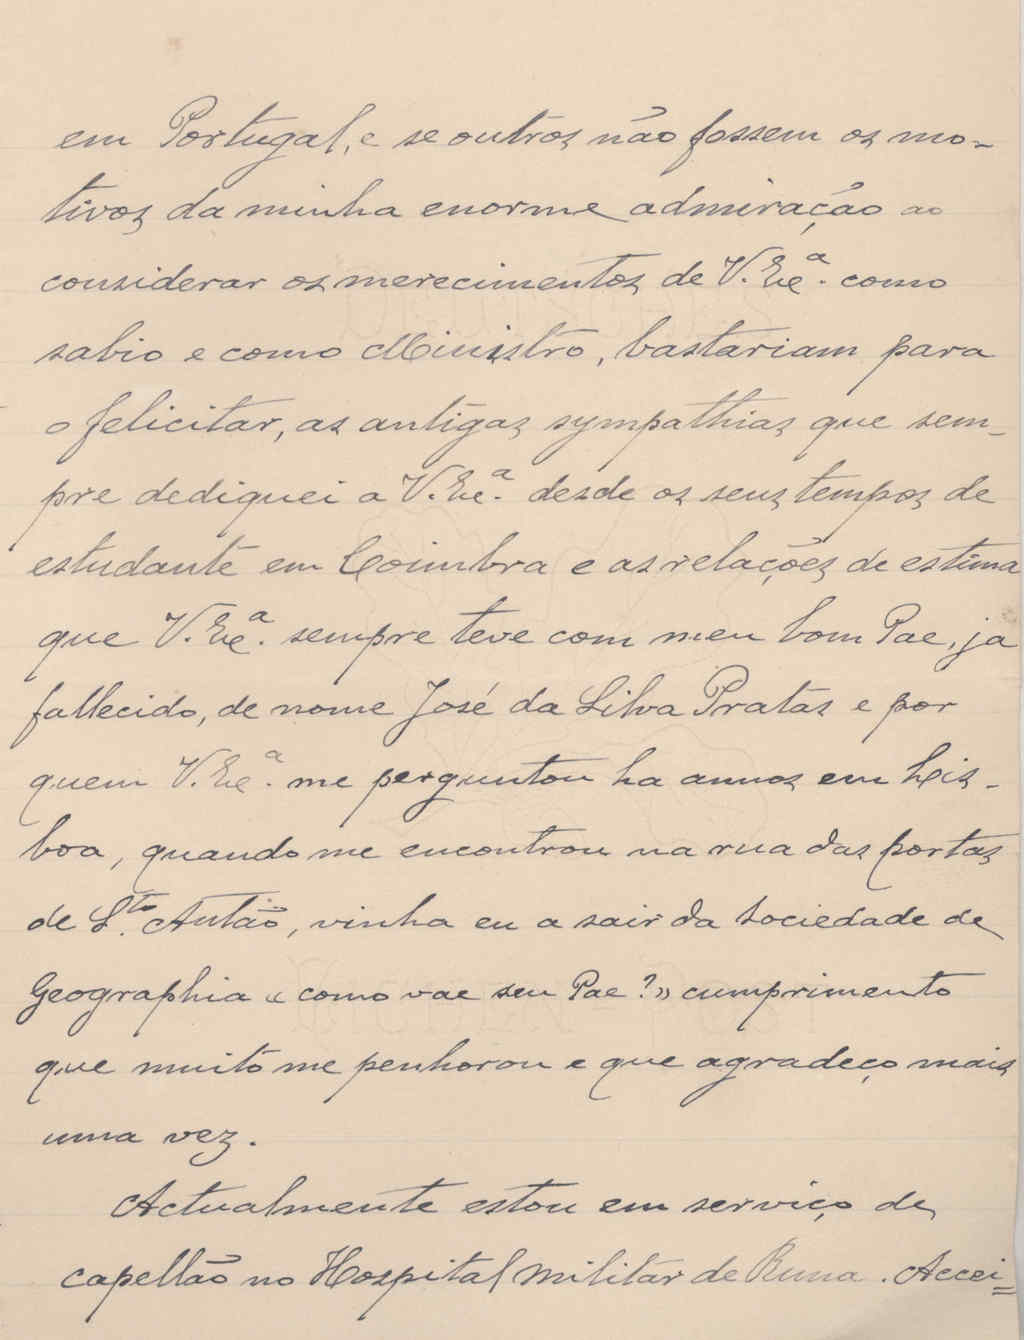 em Portugal, e se outros não fossem os mo-
tivos da minha enorme admiração ao
considerar os merecimentos de V. Exª. como
sabio e como Ministro, bastariam para
o felicitar, as antigas sympathias que sem-
pre dediquei a V. Exª. desde os seus tempos de
estudante em Coimbra e as relações de estima
que V. Exª. sempre teve com meu bom Pae, ja
fallecido, de nome José da Silva Pratas e por
quem V. Exª. me perguntou ha annos em Lis-
boa, quando me encontrou na rua das portas
de S.to Antão, vinha eu a sair da Sociedade de
Geographia « como vae seu Pae? » cumprimento
que muito me penhorou e que agradeço mais
uma vez.
Actualmente estou em serviço de
capellão no Hospital Militar de Runa. Accei=